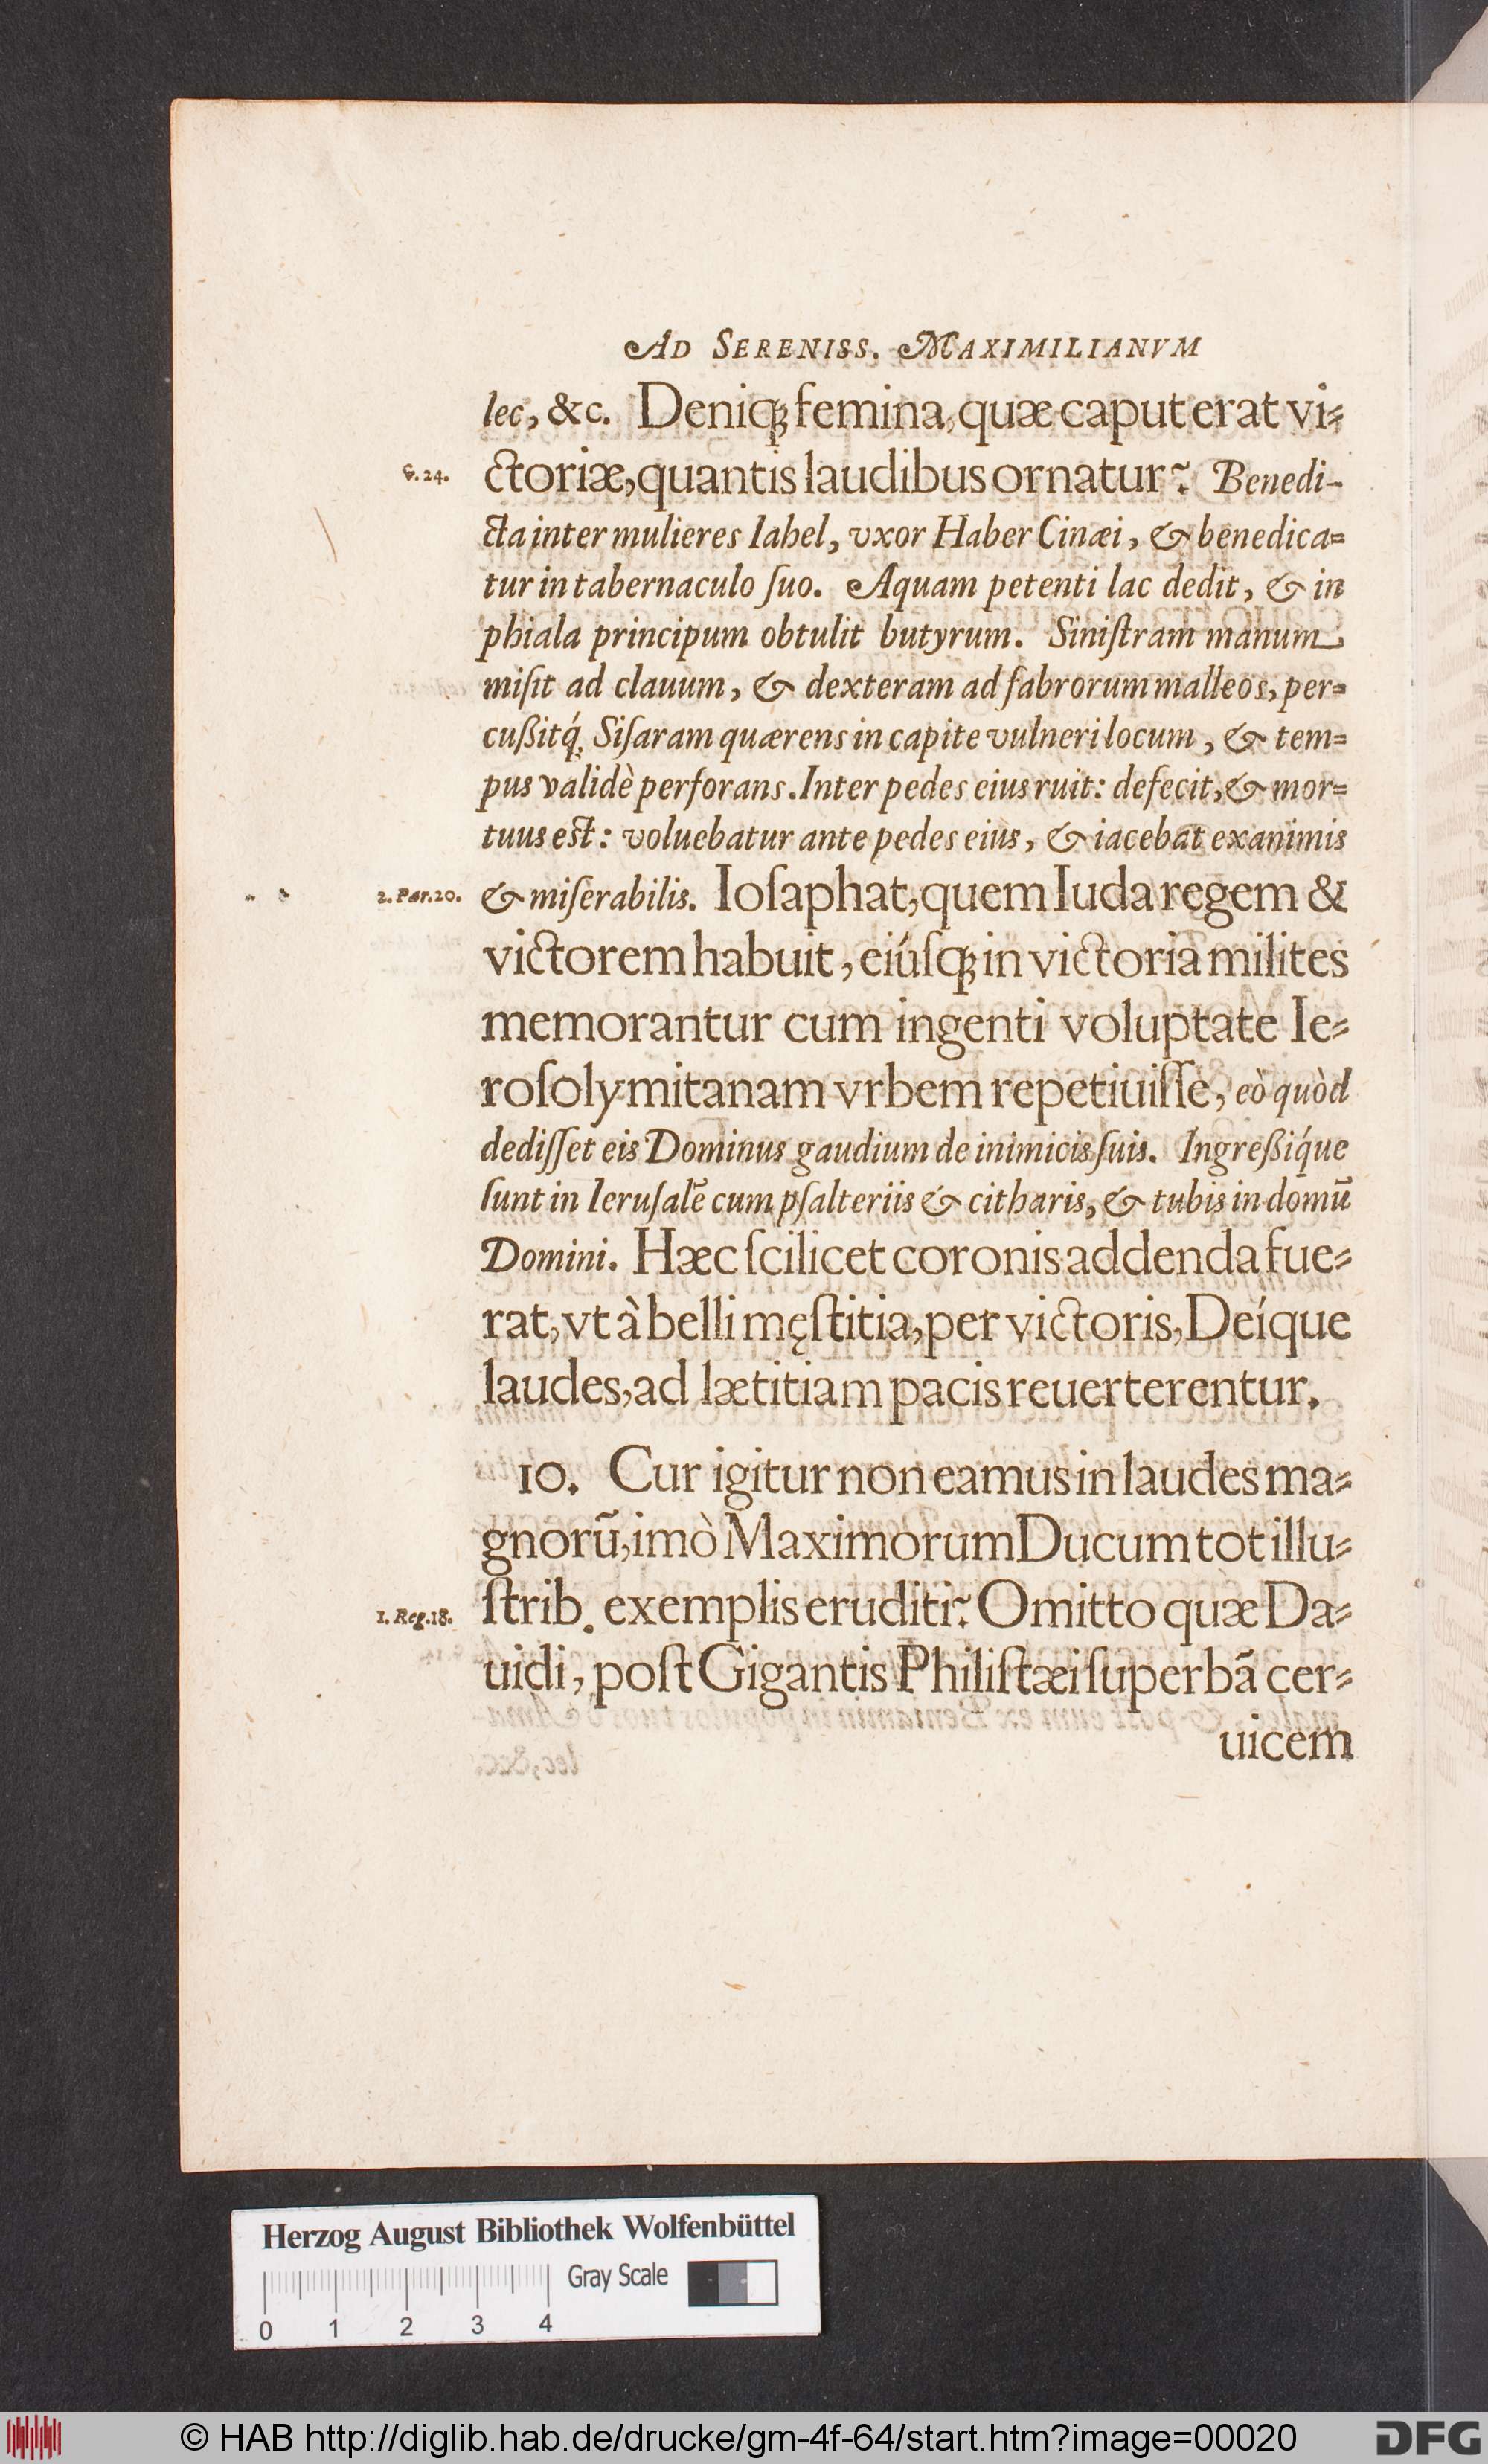 AD SERENISS. MAXIMILIANVM
lec, &c. Deniq́ꝫ femina, quæ caput erat vi⸗
ꝟ.24.
ctoriæ, quantis laudibus ornatur? Benedi-
cta inter mulieres Iahel, vxor Haber Cinæi, & benedica=
tur in tabernaculo ſuo. Aquam petenti lac dedit, & in
phiala principum obtulit butyrum. Siniſtram manum
miſit ad clauum, & dexteram ad fabrorum malleos, per=
cußitq́; Siſaram quærens in capite vulneri locum, & tem=
pus validè perforans. Inter pedes eius ruit: defecit, & mor=
tuus est: voluebatur ante pedes eius, & iacebat exanimis
2. Par.20.
& miſerabilis. Ioſaphat, quem Iuda regem &
victorem habuit, eiúſqꝫ in victoria milites
memorantur cum ingenti voluptate Ie⸗
roſolymitanam vrbem repetiuiſſe, eò quòd
dediſſet eis Dominus gaudium de inimicis ſuis. Ingreßiq́ue
ſunt in Ieruſalẽ cum pſalteriis & citharis, & tubis in domũ
Domini. Hæc ſcilicet coronis addenda fue⸗
rat, vt à belli męſtitia, per victoris, Deíque
laudes, ad lætitiam pacis reuerterentur.
10. Cur igitur non eamus in laudes ma⸗
gnorũ, imò Maximorum Ducum tot illu⸗
1. Reg.18.
ſtrib. exemplis eruditi? Omitto quæ Da⸗
uidi, poſt Gigantis Philiſtæi ſuperbã cer⸗
uicem
Herzog August Bibliothek Wolfenbüttel
Gray Scale
0 1 2 3 4
© HAB http://diglib.hab.de/drucke/gm-4f-64/start.htm?image=00020
DFG